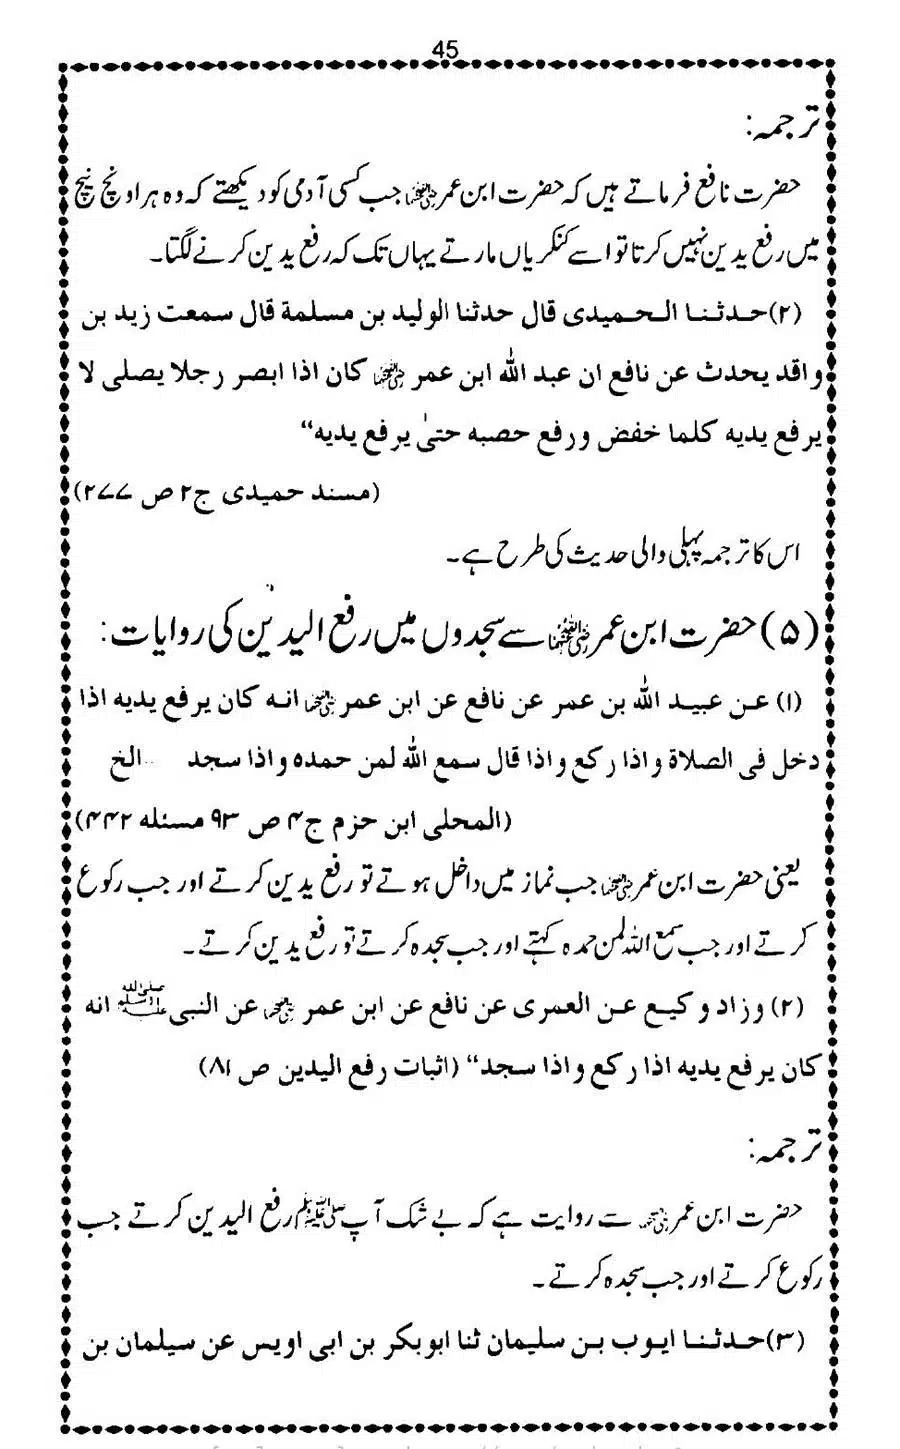 45
ترجمہ:
حضرت نافع فرماتے ہیں کہ حضرت ابن عمر رضی اللہ عنہما جب کسی آدمی کو دیکھتے کہ وہ ہر اونچ نیچ
میں رفع یدین نہیں کرتا تو اسے کنکریاں مارتے یہاں تک کہ رفع یدین کرنے لگتا۔
(۲) حدثنا الحمیدی قال حدثنا الولید بن مسلمة قال سمعت زید بن
واقد یحدث عن نافع ان عبد اللّٰه ابن عمر رضی اللہ عنہما کان اذا ابصر رجلا یصلی لا
یرفع یدیه کلما خفض ورفع حصبه حتیٰ یرفع یدیه“
(مسند حمیدی ج۲ ص ۲۷۷)
اس کا ترجمہ پہلی والی حدیث کی طرح ہے۔
(۵) حضرت ابن عمر رضی اللہ عنہما سے سجدوں میں رفع الیدین کی روایات:
(۱) عن عبید اللّٰه بن عمر عن نافع عن ابن عمر رضی اللہ عنہما انه کان یرفع یدیه اذا
دخل فی الصلاة واذا رکع واذا قال سمع اللّٰه لمن حمده واذا سجد .. الخ
(المحلی ابن حزم ج۴ ص ۹۳ مسئله ۴۴۲)
یعنی حضرت ابن عمر رضی اللہ عنہما جب نماز میں داخل ہوتے تو رفع یدین کرتے اور جب رکوع
کرتے اور جب سمع اللہ لمن حمدہ کہتے اور جب سجدہ کرتے تو رفع یدین کرتے۔
(۲) وزاد وکیع عن العمری عن نافع عن ابن عمر رضی اللہ عنہما عن النبی صلی اللہ علیہ وسلم انه
کان یرفع یدیه اذا رکع واذا سجد“ (اثبات رفع الیدین ص ۸۱)
ترجمہ:
حضرت ابن عمر رضی اللہ عنہما سے روایت ہے کہ بے شک آپ صلی اللہ علیہ وسلم رفع الیدین کرتے جب
رکوع کرتے اور جب سجدہ کرتے۔
(۳) حدثنا ایوب بن سلیمان ثنا ابوبکر بن ابی اویس عن سیلمان بن